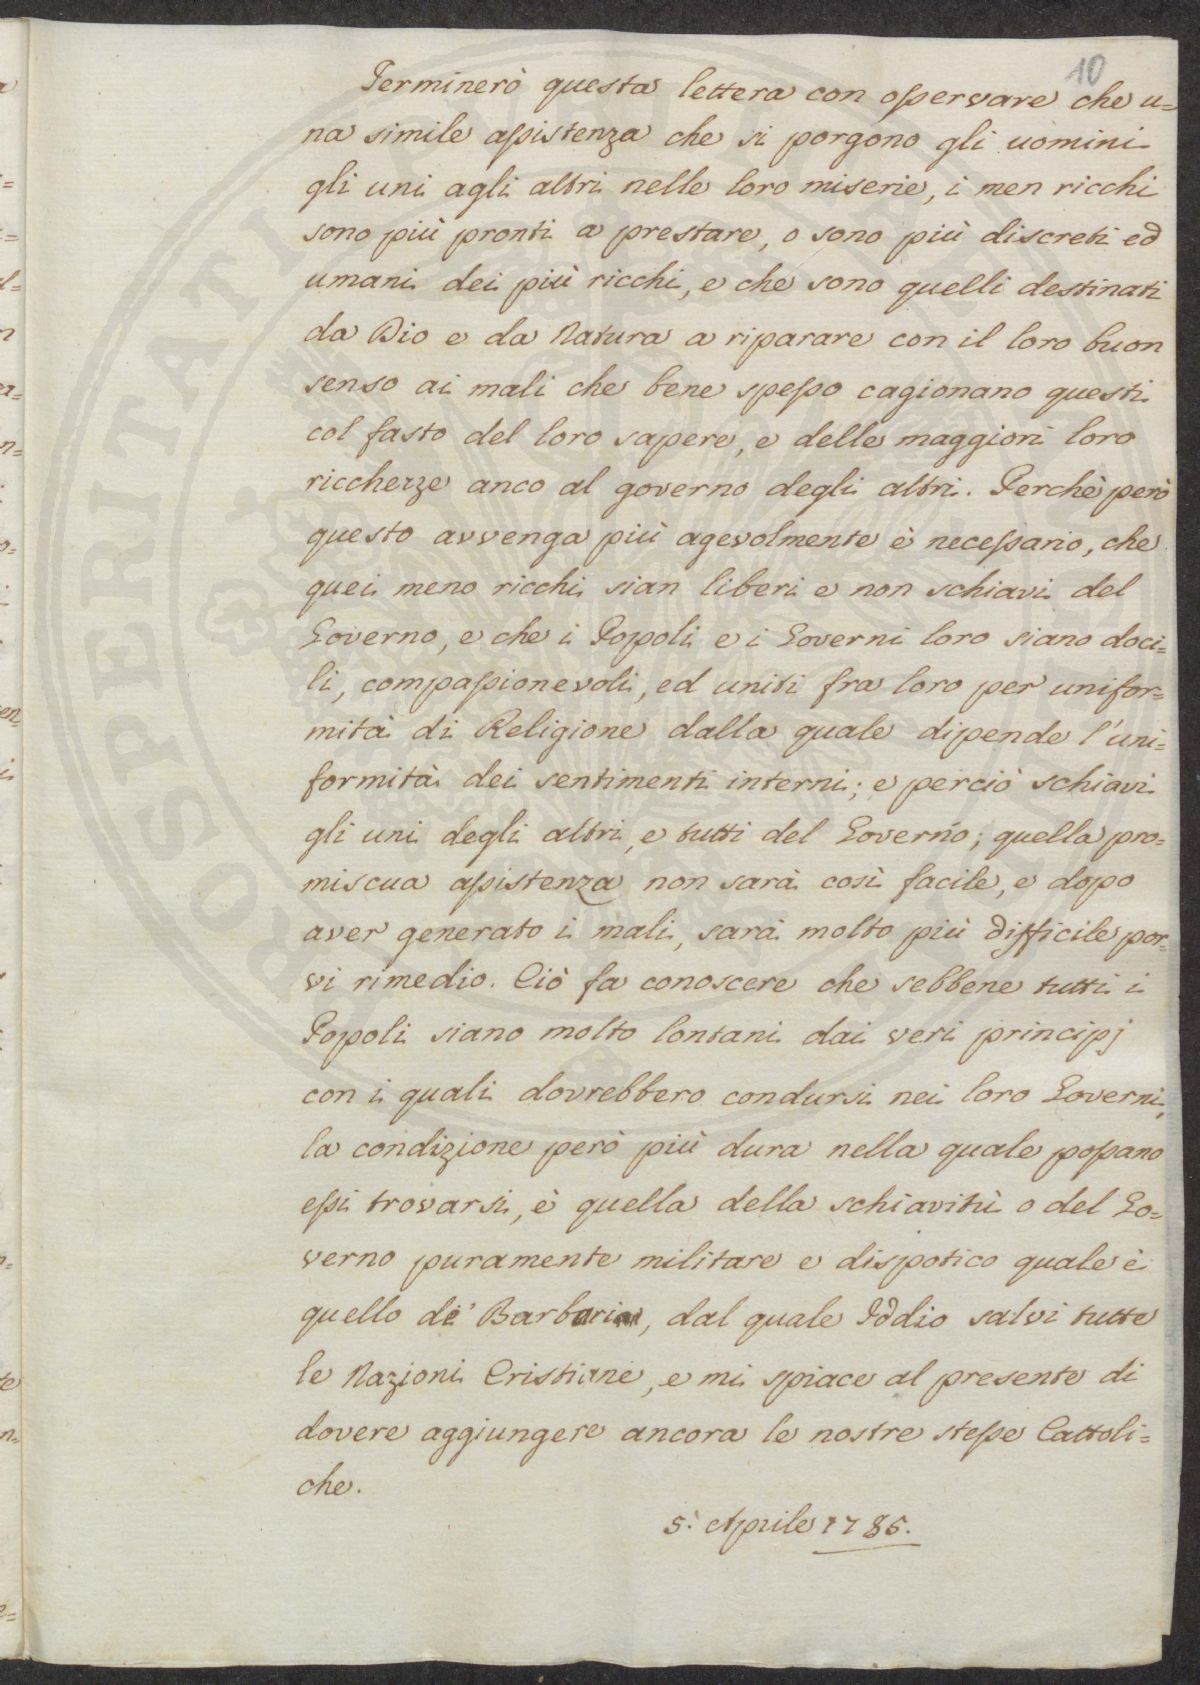 10
Terminerò questa lettera con oſservare che u=
na simile aſsistenza che si porgono gli uomini
gli uni agli altri nelle loro miserie, i men ricchi
sono più pronti a prestare, o sono più discreti ed
umani dei più ricchi, e che sono quelli destinati
da Dio e da Natura a riparare con il loro buon
senso ai mali che bene speſso cagionano questi
col fasto del loro sapere, e delle maggiori loro
riccheze anco al governo degli altri. Perchè però
questo avvenga più agevolmente è neceſsario, che
quei meno ricchi sian liberi e non schiavi del
Governo, e che i Popoli e i Governi loro siano doci=
li, compaſsionevoli, ed uniti fra loro per unifor=
mità di Religione dalla quale dipende l'uni=
formità dei sentimenti interni; e perciò schiavi
gli uni degli altri, e tutti del Governo; quella pro=
miscua aſsistenza non sarà così facile, e dopo
aver generato i mali, sarà molto più difficile por=
vi rimedio. Ciò fa conoscere che sebbene tutti i
Popoli siano molto lontani dai veri principj
con i quali dovrebbero condursi nei loro Governi,
la condizione però più dura nella quale poſsano
eſsi trovarsi, è quella della schiavitù o del Go=
verno puramente militare e dispotico quale è
quello de' Barbari, dal quale Iddio salvi tutte
le Nazioni Cristiane, e mi spiace al presente di
dovere aggiungere ancora le nostre steſse Cattoli=
che.
5. Aprile 1785.
PROSPERITATI